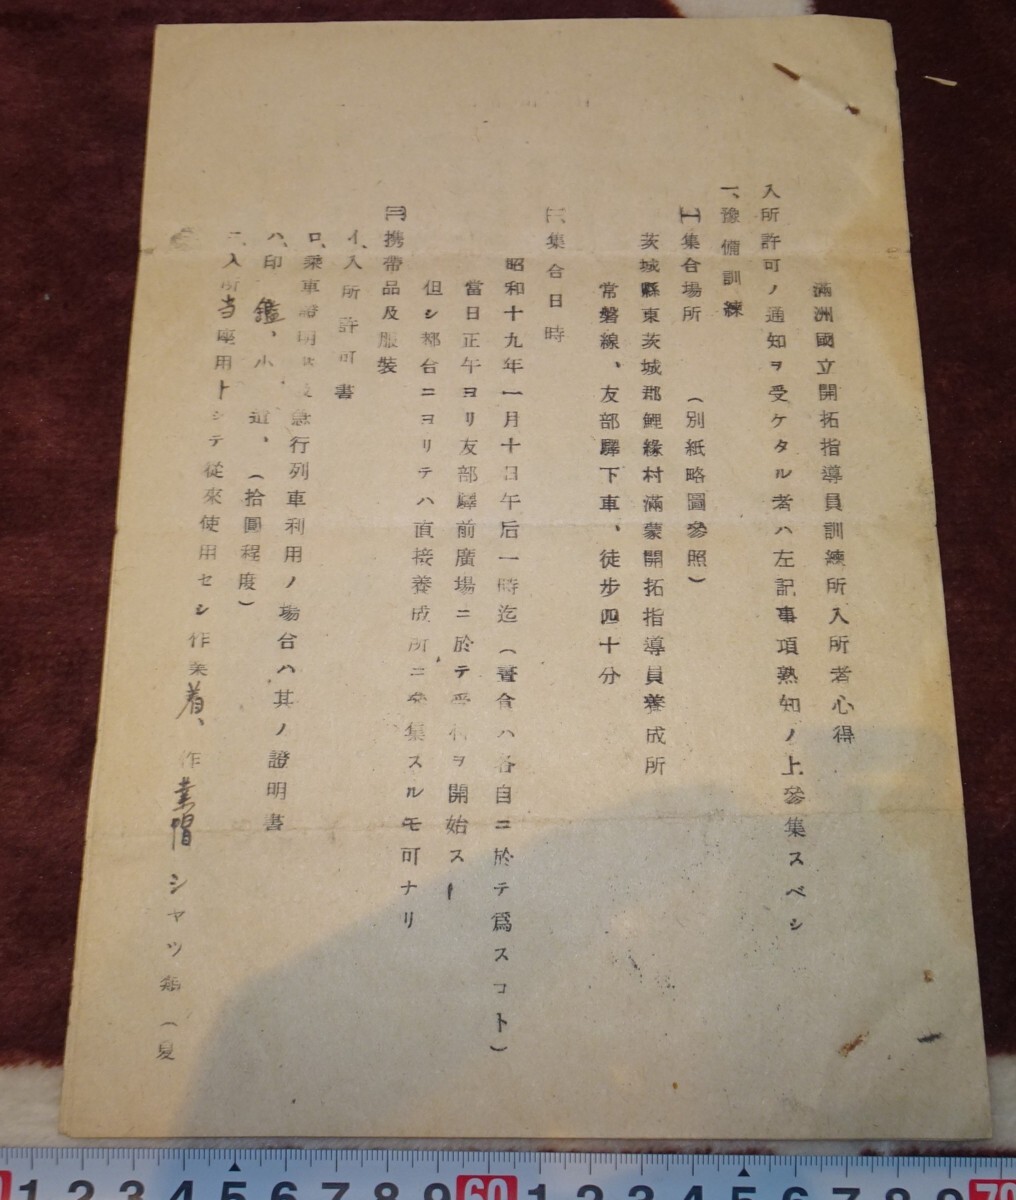 滿洲國立開拓指導員訓練所入所者心得
入所許可ノ通知ヲ受ケタル者ハ左記事項熟知ノ上參集スベシ
一、豫備訓練
㈠集合場所 (別紙略圖參照)
茨城縣東茨城郡鯉緣村滿蒙開拓指導員養成所
常磐線、友部驛下車、徒步四十分
㈡集合日時
昭和十九年一月十日午后一時迄(晝食ハ各自ニ於テ爲スコト)
當日正午ヨリ友部驛前廣場ニ於テ受付ヲ開始ス
但シ都合ニヨリテハ直接養成所ニ參集スルモ可ナリ
㈢携帶品及服裝
イ、入所許可書
ロ、乘車證明書急行列車利用ノ場合ハ其ノ證明書
ハ、印鑑、小 道、(拾圓程度)
ニ、入所当座用トシテ從來使用セシ作業着、作業帽シャツ類(夏
1 2 3 4 5 6 7 8 9 60 1 2 3 4 5 6 7 8 9 70